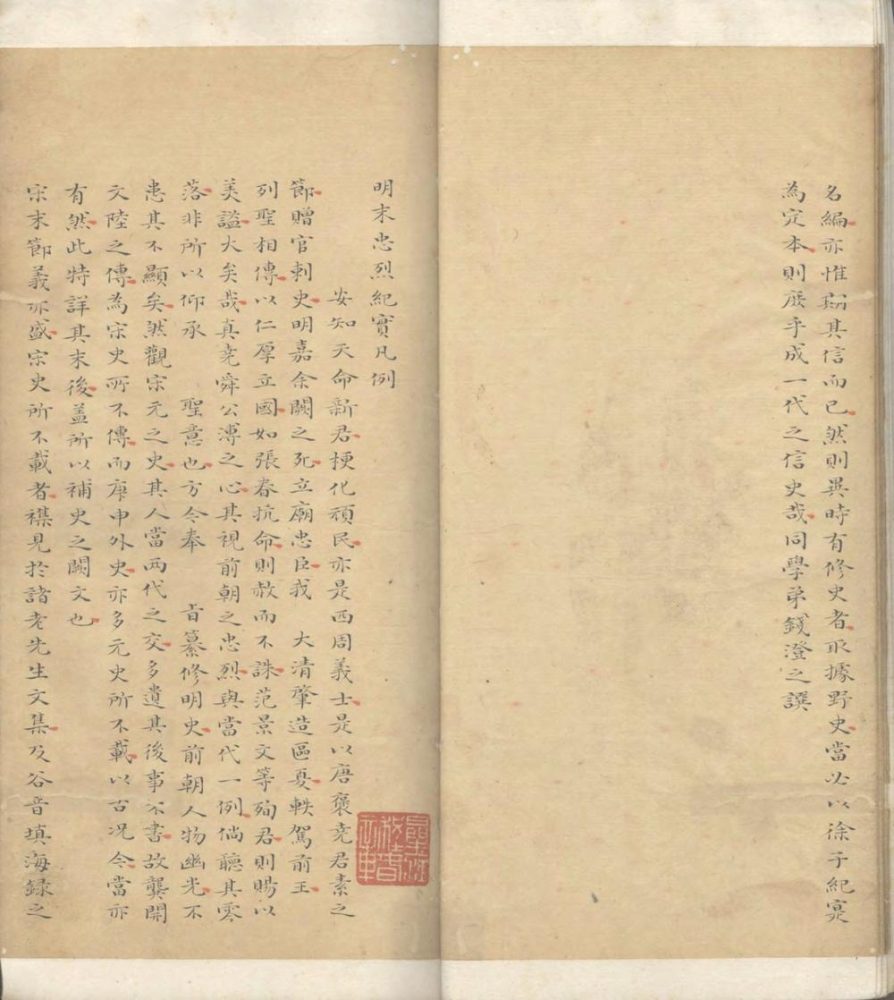 名編亦惟期其信而已然則異時有修史者取據野史當必以徐子紀寔
為定本則庶乎成一代之信史哉同學弟錢澄之譔
明末忠烈紀實凡例
安知天命新君梗化頑民亦是西周義士是以唐褒堯君素之
節贈官刺史明嘉余闕之死立廟忠臣我 大清肇造區夏軼駕前王
列聖相傳以仁厚立國如張春抗命則赦而不誅范景文等殉君則賜以
美諡大矣哉真堯舜公溥之心其視前朝之忠烈與當代一例倘聽其零
落非所以仰承 聖意也方今奉 旨纂修明史前朝人物幽光不
患其不顯矣然觀宋元之史其人當兩代之交多遺其後事不書故龔開
文陸之傳為宋史所不傳而庚申外史亦多元史所不載以古況今當亦
有然此特詳其末後蓋所以補史之闕文也
宋末節義亦盛宋史所不載者襍見於諸老先生文集及谷音填海錄之